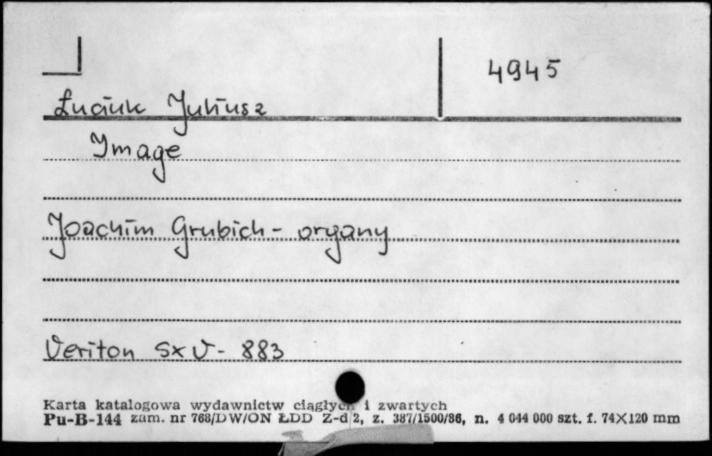 4945
Łuciuk Juliusz
Image
Joachim Grubich - organy
Veriton SXV - 883
Karta katalogowa wydawnictw ciągłych i zwartych
Pu-B-144 zam. nr 768/DW/ON ŁDD Z-d 2, z. 387/1500/86, n. 4 044 000 szt. f. 74×120 mm